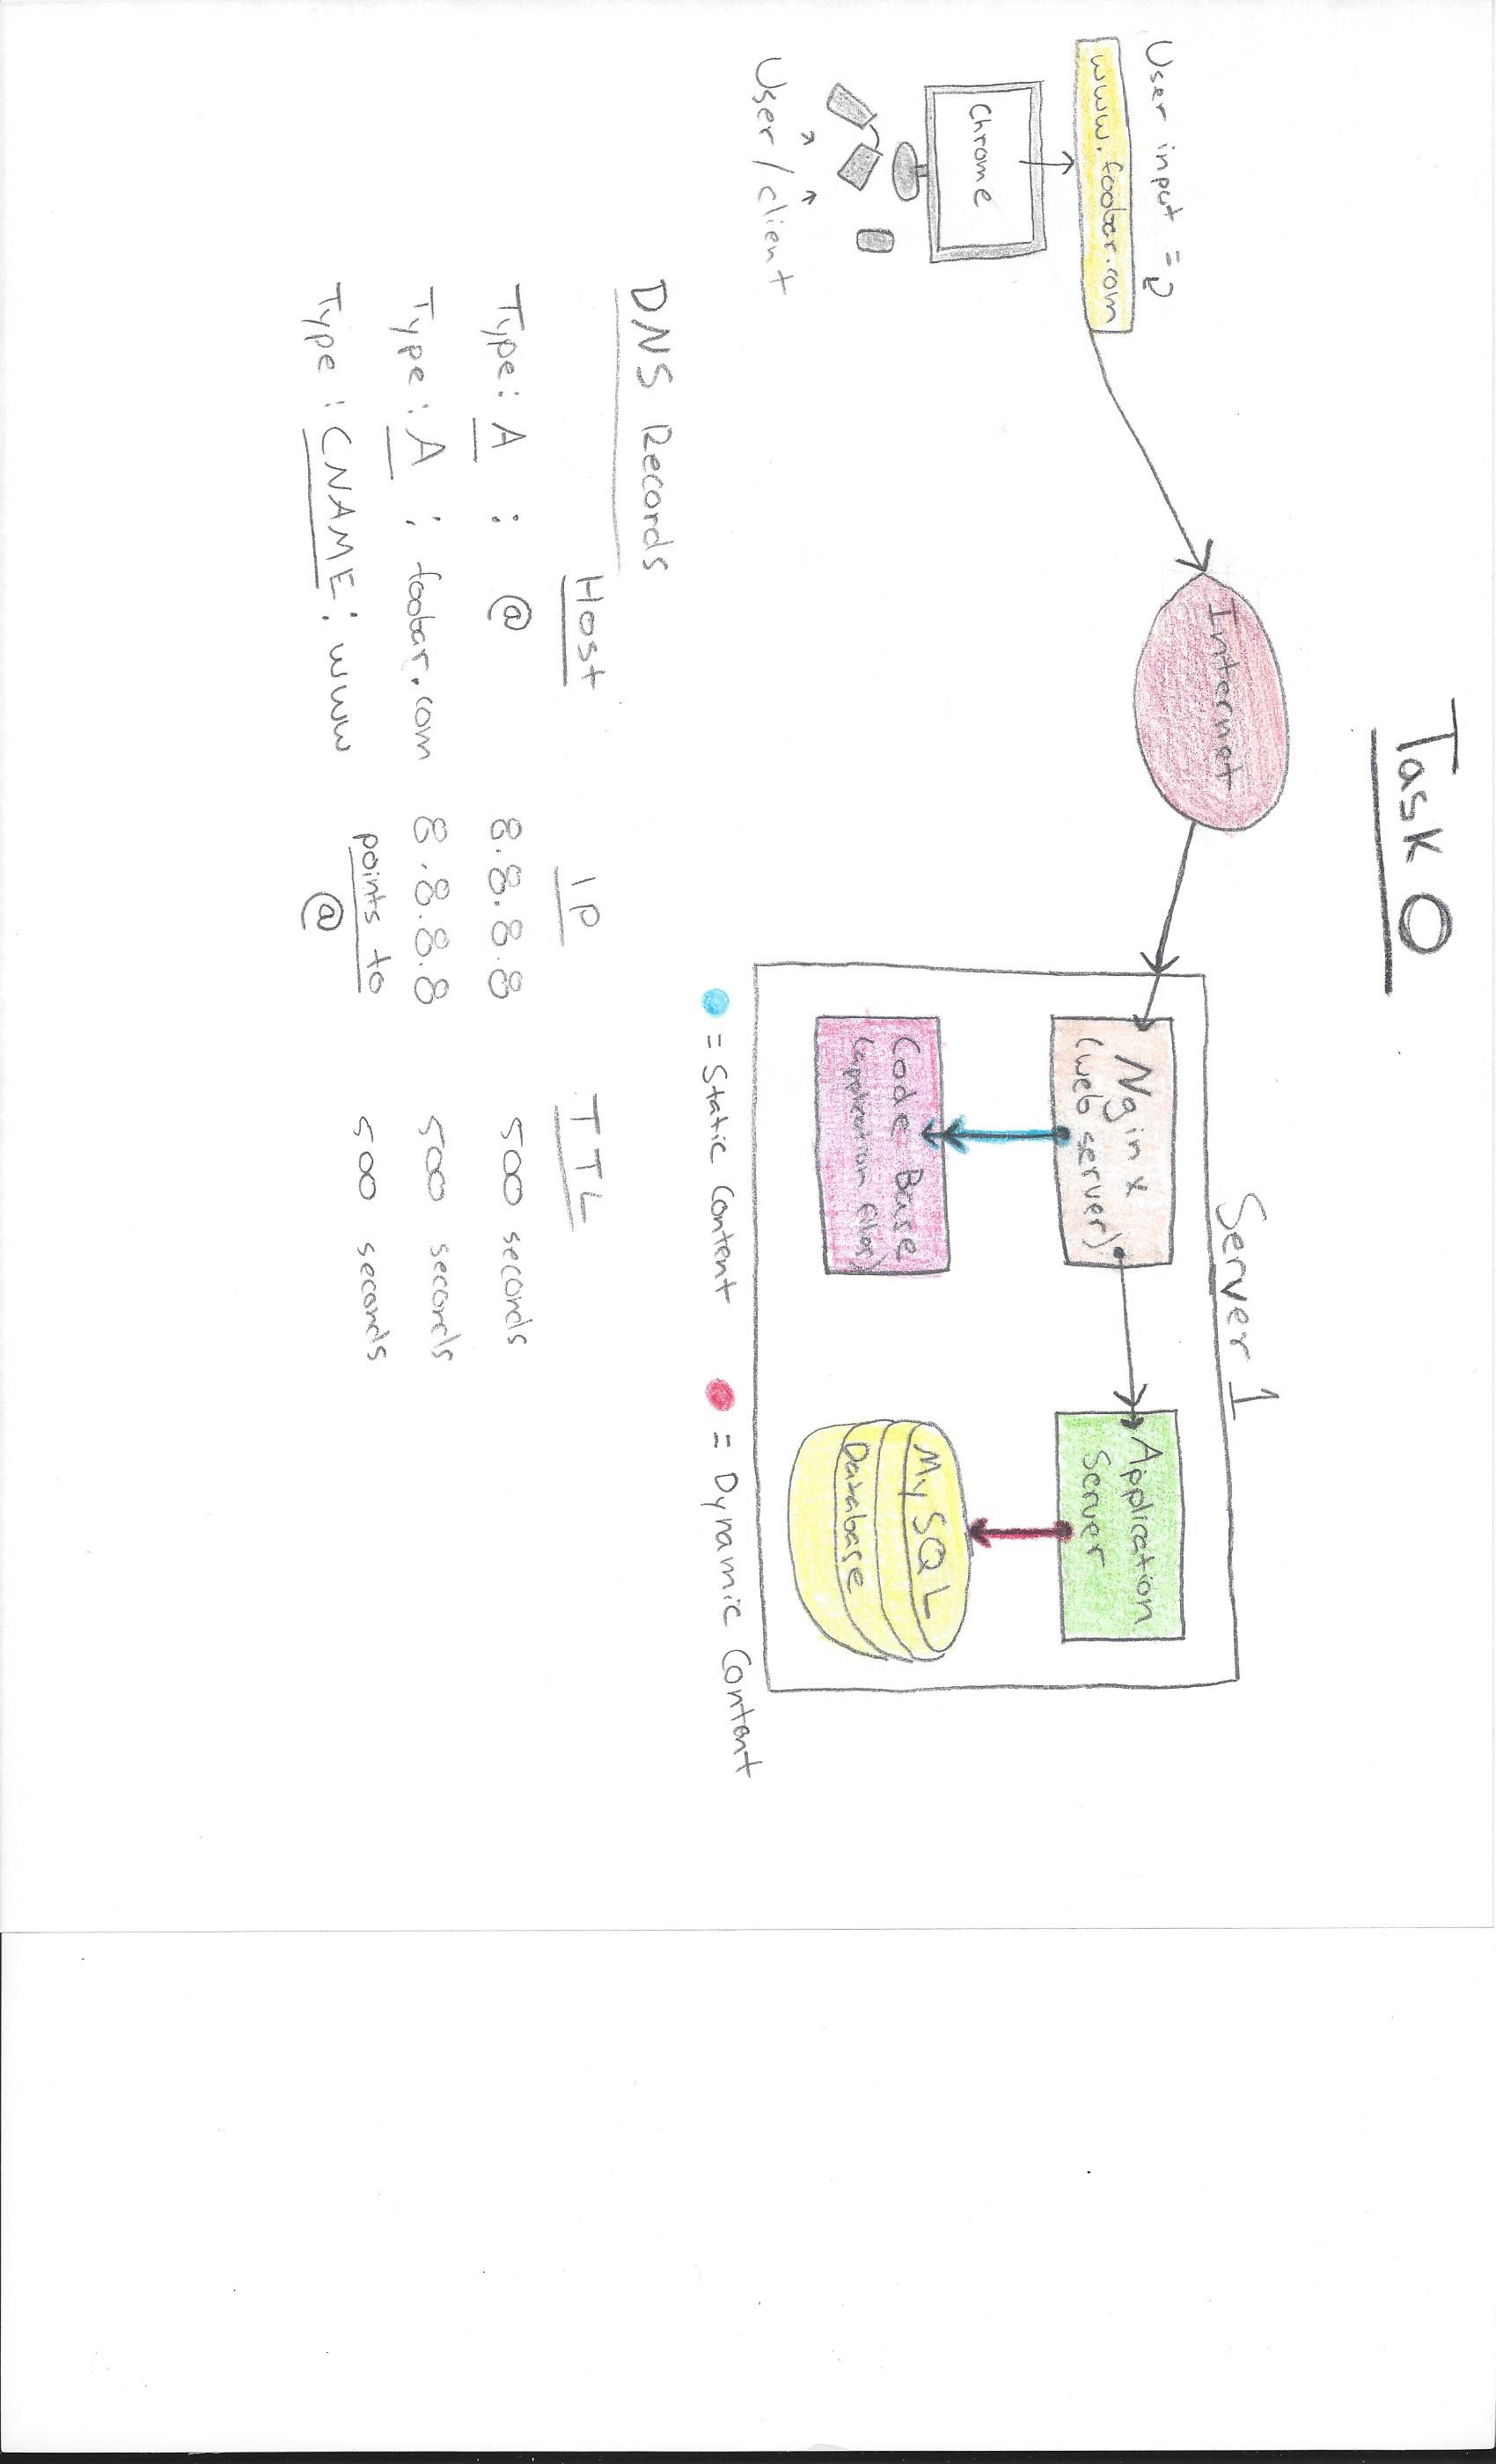 Task 0
User input =
www.foobar.com
Chrome
User / client
Internet
Server 1
Nginx
(web server)
Application
Server
Code Base
(application files)
MySQL
Database
= Static Content
= Dynamic Content
DNS Records
Host IP TTL
Type: A : @ 8.8.8.8 500 seconds
Type: A : foobar.com 8.8.8.8 500 seconds
Type: CNAME: www points to @ 500 seconds